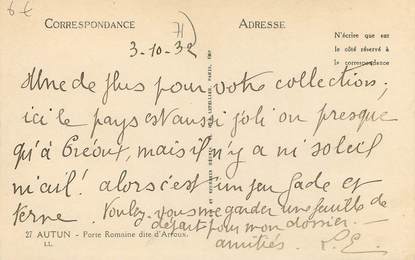 6 €
CORRESPONDANCE
ADRESSE
71
N'écrire que sur
le côté réservé à
la correspondance
3-10-32
Une de plus pour votre collection;
ici le pays est aussi joli ou presque
qu'à Créout, mais il n'y a ni soleil
ni ail! alors c'est un peu fade et
terne. Voulez-vous me garder une feuille de
départ pour mon dossier.
amitiés. L. E.
27 AUTUN - Porte Romaine dite d'Arroux.
LL.